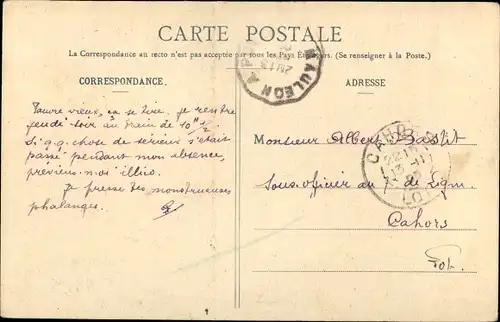 CARTE POSTALE
La Correspondance au recto n'est pas acceptée par tous les Pays Étrangers. (Se renseigner à la Poste.)
CORRESPONDANCE.
ADRESSE
MAULEON
CAHORS
LOT
Pauvre vieux, ça se tire, je rentre
jeudi soir au train de 10h ½
Si q.q. chose de sérieux s'était
passé pendant mon absence,
préviens-moi illico.
Je presse tes monstrueuses
phalanges.
Monsieur Albert Bastit
Sous-officier au 7e de Lign.
Cahors
Lot.